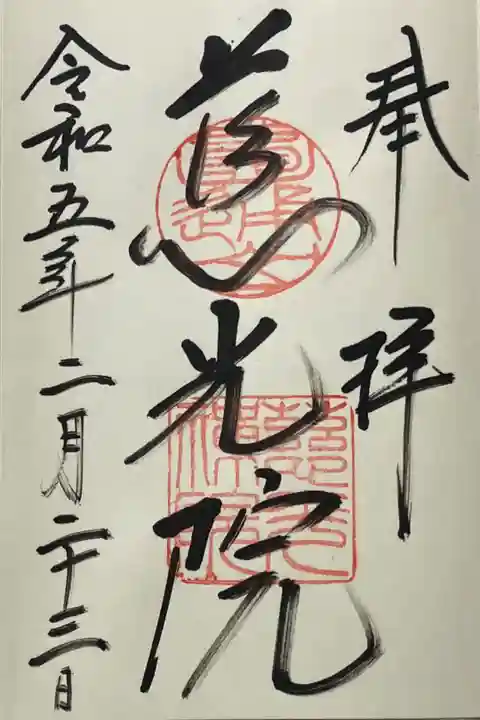 奉拝
慈光院
令和五年二月二十三日